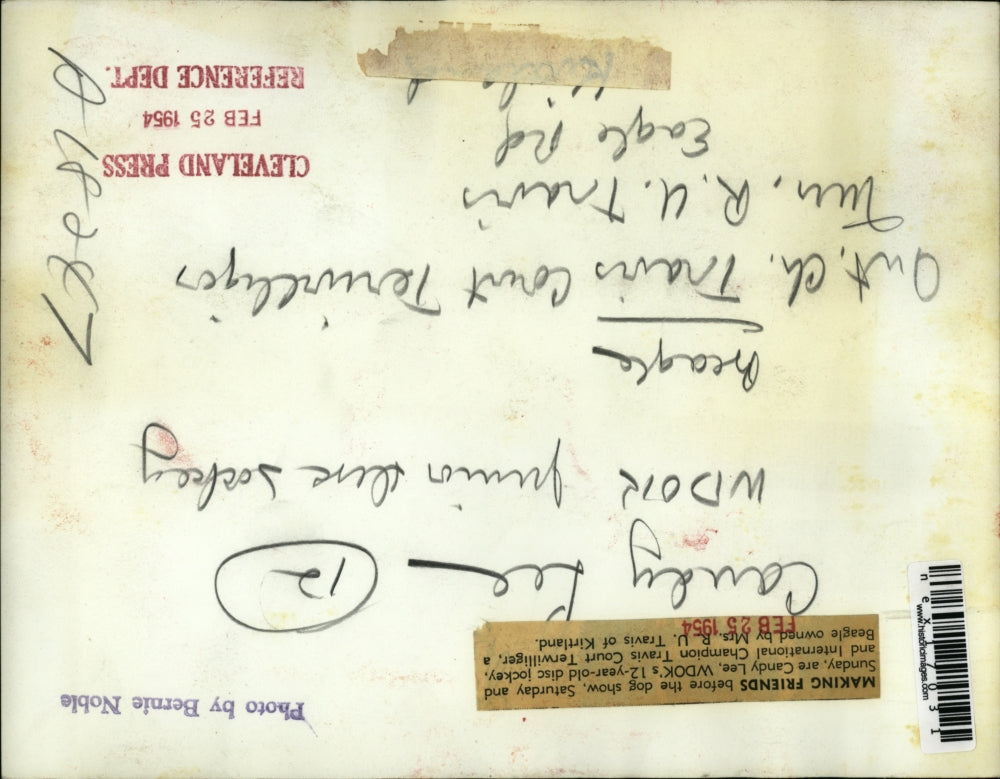 Photo by Bernie Noble
MAKING FRIENDS before the dog show, Saturday and
Sunday, are Candy Lee, WDOK's 12-year-old disc jockey,
and International Champion Travis Court Terwilliger, a
Beagle owned by Mrs. R. U. Travis of Kirtland.
FEB 25 1954
Candy Lee — 12
WDOK junior disc jockey
Beagle
Int. Ch. Travis Court Terwilliger
R. U. Travis
Eagle Rd
Kirtland
CLEVELAND PRESS
FEB 25 1954
REFERENCE DEPT.
www.historicimages.com
nex17031